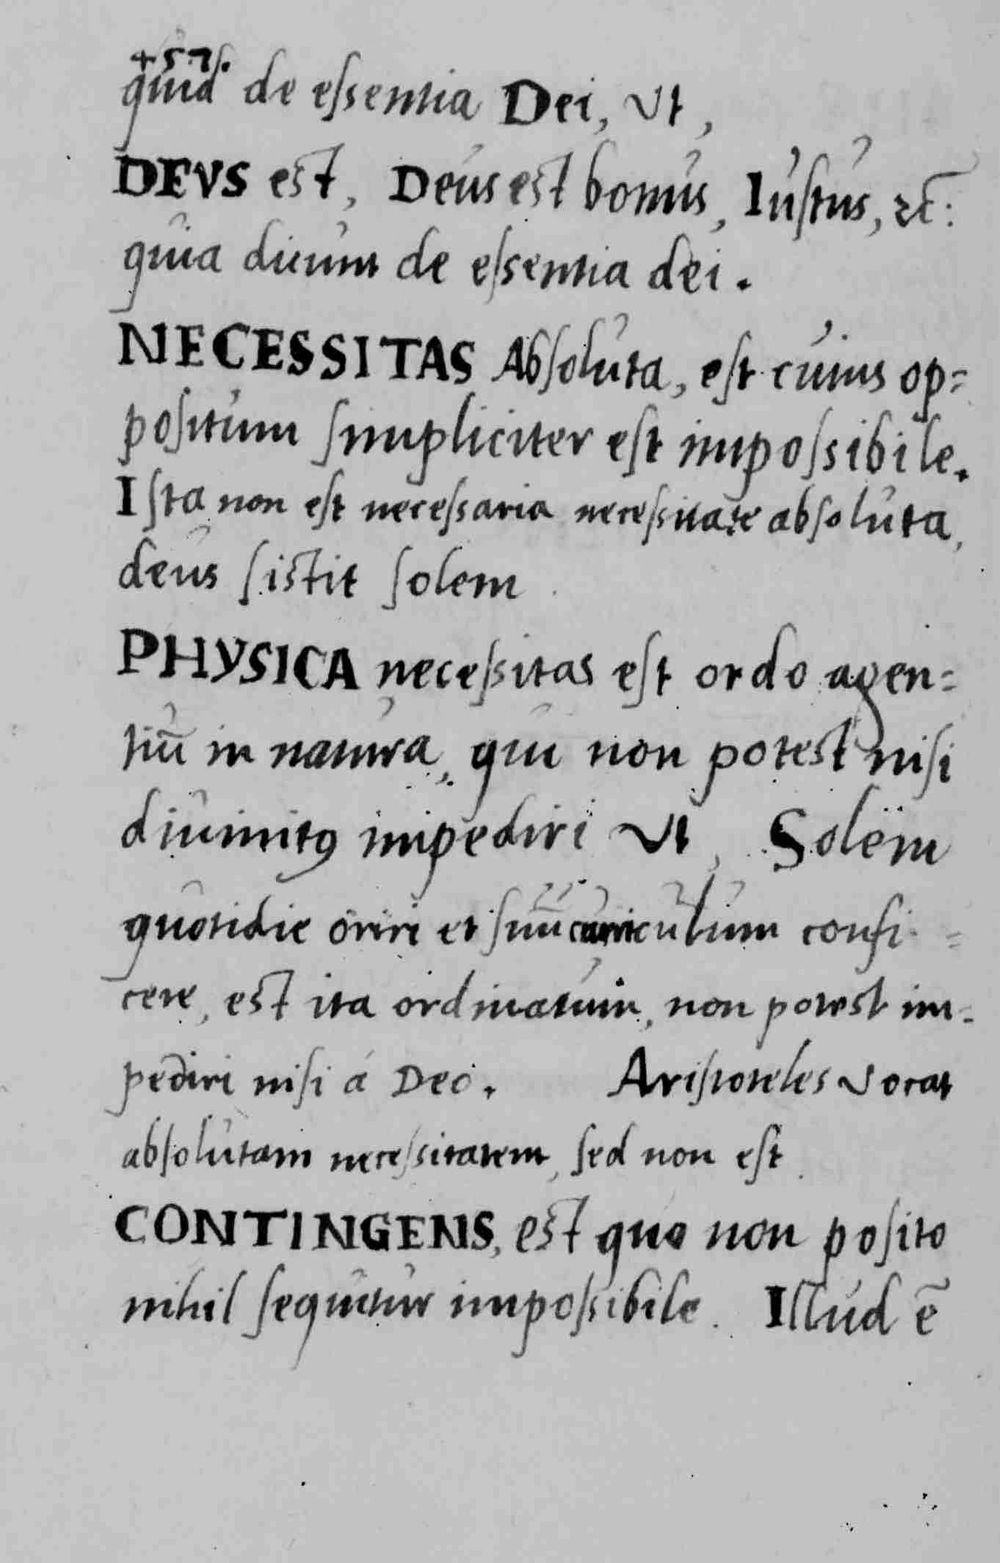 +57s.
quid de eſsentia Dei, Vt,
DEVS est, Deus est bonus, Iuſtus, ꝛc̄:
quia dicunt de eſsentia dei.
NECESSITAS Abſoluta, eſt cuius op=
poſitum ſimpliciter eſt impoſsibile.
Iſta non eſt neceſsaria neceſsitate abſoluta,
deus ſistit ſolem
PHYSICA neceſsitas eſt ordo agen=
tiū in natura, qui non potest niſi
diuinitꝰ impediri Vt, Solem
quotidie oriri et ſuū curriculum confi=
cere, est ita ordinatum, non potest im=
pediri niſi á Deo. Ariſtoteles Vocat
abſolutam neceſsitatem, ſed non eſt
CONTINGENS, est quo non poſito
nihil ſequitur impoſsibile. Illud ē